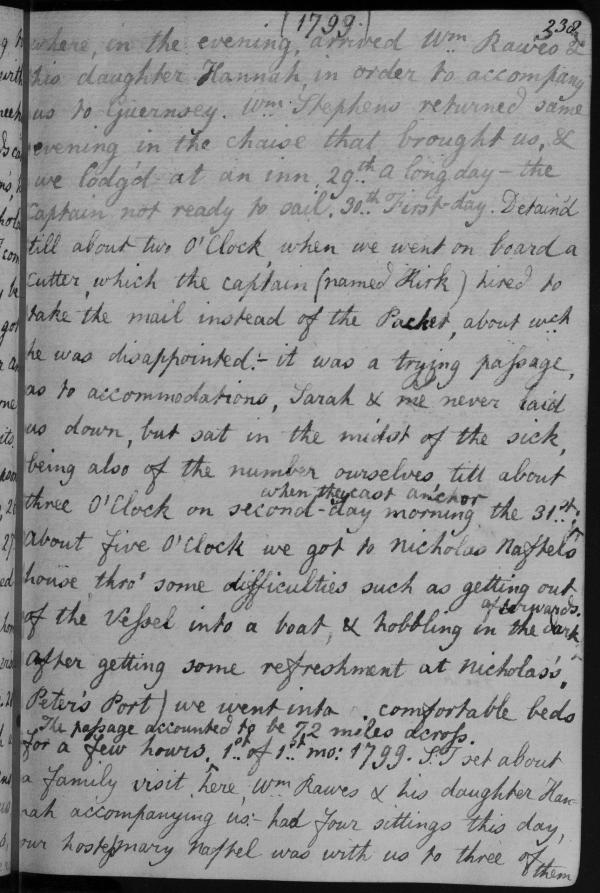 (1799.)
238
where, in the evening, arrived Wm. Rawes &
his daughter Hannah, in order to accompany
us to Guernsey. Wm. Stephens returned same
evening in the chaise that brought us, &
we lodg'd at an inn. 29th. a long day – the
Captain not ready to sail. 30th. First-day. Detain'd
till about two O'Clock, when we went on board a
Cutter, which the captain (named Kirk) hired to
take the mail instead of the Packet, about wch
he was disappointed:– it was a trying passage,
as to accommodations, Sarah & me never laid
us down, but sat in the midst of the sick,
being also of the number ourselves, till about
when they cast anchor
three O'Clock on second-day morning the 31st:
About five O'Clock we got to Nicholas Naftels
house, thro' some difficulties such as getting out
afterwards.
of the Vessel into a boat, & hobbling in the dark
After getting some refreshment at Nicholas's,
Peter's Port) we went into comfortable beds
The passage accounted to be 72 miles across.
for a few hours. 1st. of 1st. mo: 1799. S.T set about
a family visit here, Wm Rawes & his daughter Han=
nah accompanying us:– had four sittings this day,
our hostess Mary Naftel was with us to three of
them